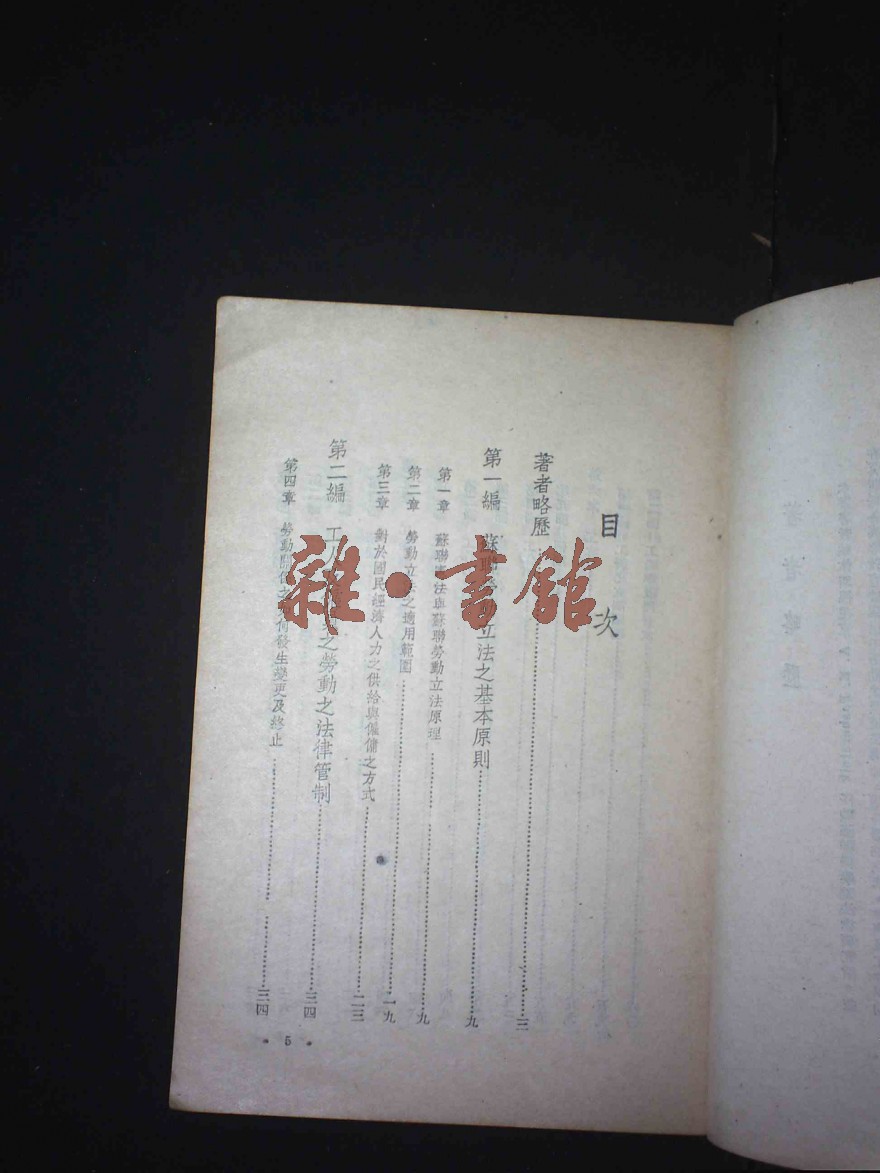 目次
著者略歷……三
第一編 蘇聯勞動立法之基本原則……九
第一章 蘇聯憲法與蘇聯勞動立法原理……九
第二章 勞動立法之適用範圍……一九
第三章 對於國民經濟人力之供給與僱傭之方式……二三
第二編 工人之勞動之法律管制……三四
第四章 勞動關係之如何發生變更及終止……三四
• 5 •
雜·書館
著者略歷